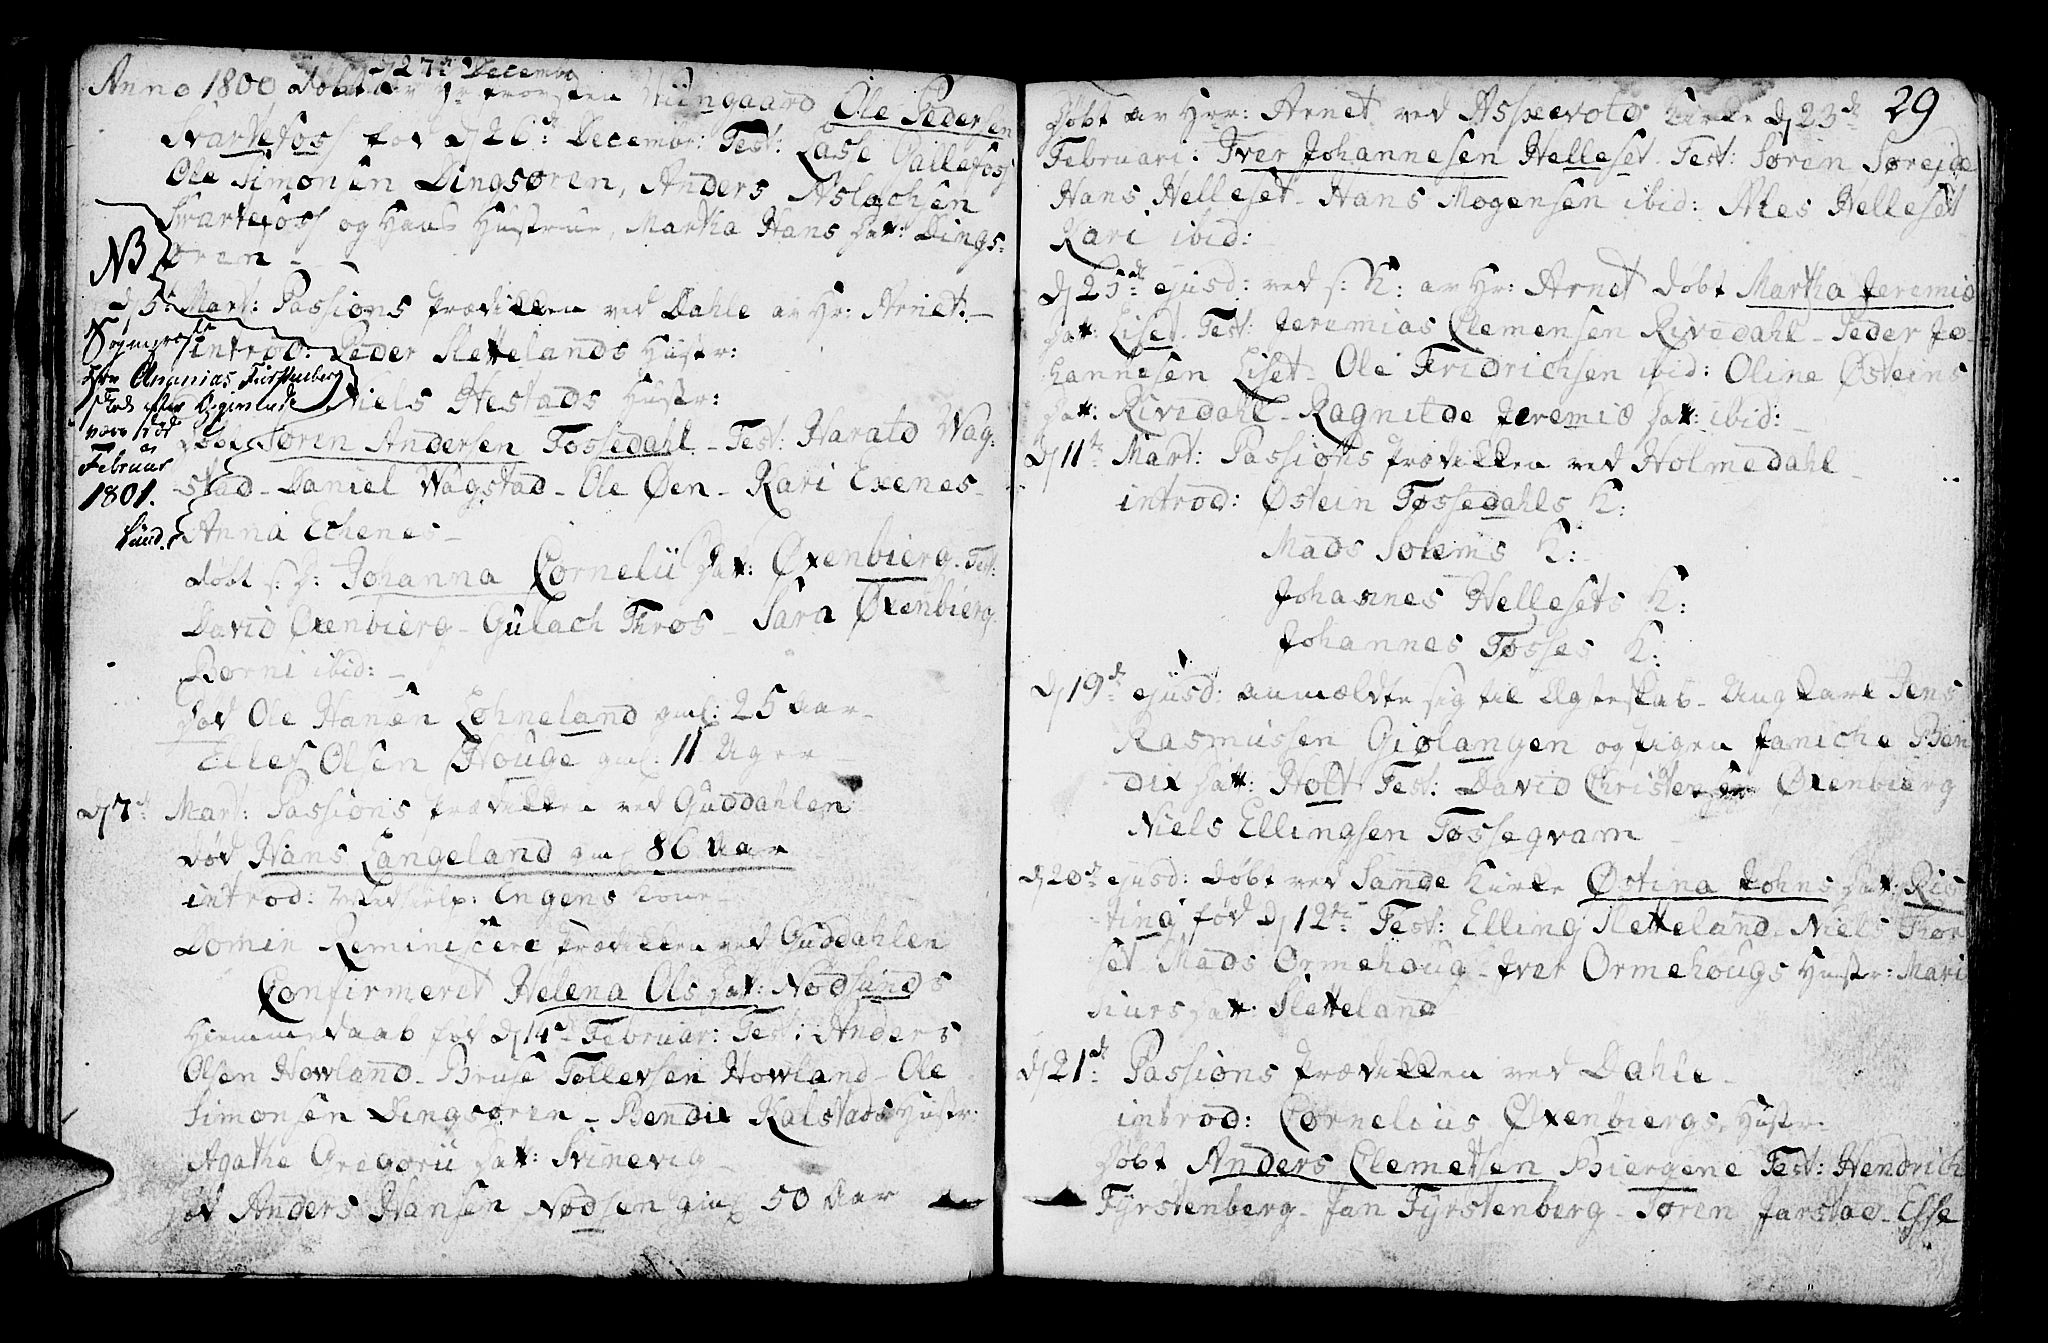 Anno 1800 døbt d 27de Decembr
Wiingaard Ole Pedersen
Svartefoss fød d 26de Decembr: Test: Lasse Gallefoss
Ole Simonsen Dingsøren, Anders Aslachsen
Svartefoss og Hans Hustrue, Martha Hans dat: Dings-
øren -
NB
d 5te Mart: Passions Prædikken ved Dahle av Hr: Arnet. -
Sognepræst
introd: Peder Slettelands Hustr:
Hr Ananias Fürstenberg
Niels Hestads Hustr:
død
Februar
1801.
Sund.
døbt Søren Andersen Tossedahl - Test: Harald Wag-
stad - Daniel Wagstad - Ole Øen - Kari Exenes -
Anna Echenes -
døbt s: D: Johanna Cornelii dat: Øxenbierg. Test:
David Øxenbierg - Gulach Thros - Sara Øxenbierg.
Børni ibid: -
død Ole Hansen Løhneland gml: 25 Aar -
Elles Olsen Houge gml. 11 Uger -
d 7de Mart: Passions Prædikken ved Guddahlen
død Hans Langeland gml 86 Aar
introd: Engens Kone -
Domin Reminiscere Prædikken ved Guddahlen
Confirmeret Helena Ols dat: Nødsands
Hiemmedaab fød d 14de Februar: Test: Anders
Olsen Howland - Bruse Tollevsen Howland - Ole
Simonsen Dingsøren - Bendix Kalstads Hustr:
Agathe Gregorii dat: Svinevig -
død Anders Hansen Nødsen gml 50 Aar
29
Døbt av Hr: Arnet ved Askevold Kirke d 23de
Februari: Iver Johannesen Helleset - Test: Søren Søreide
Hans Helleset - Hans Mogensen ibid: Nies Helleset
Kari ibid:
d 25de ejusd: ved s: K: av Hr: Arnet døbt Martha Jeremiæ
dat: Liset. Test: Jeremias Clemensen Rivedahl - Peder Jo-
hannesen Liset - Ole Fridrichsen ibid: Oline Østeins
dat: Rivedahl - Ragnilde Jeremiæ dat: ibid: -
d 11te Mart: Passions Prædikken ved Holmedahl -
introd: Østein Tøssedahls K:
Mads Solems K:
Johannes Hellesets K:
Johannes Tøsses K:
d 19de ejusd: anmældte sig til Ægteskab - Ungkarl Jens
Rasmussen Giølangen og Pigen Janiche Ben
dix dat: Holt Test: David Christensen Øxenbierg
Niels Ellingsen Tøssegram
d 20de ejusd: døbt ved Sande Kirke Østina Johns dat: Ris
ting fød d 12te Test: Elling Sletteland - Niels Thor
set Mads Ormehoug - Iver Ormehougs Hustr: Mari
Siurs dat: Sletteland
d 21de Passions Prædikken ved Dahle -
introd: Cornelius Øxenbiergs Hustr.
Døbt Anders Clemetsen Biergene Test: Hendrich
Fyrstenberg - Jan Fyrstenberg - Søren Jarstad - Esse